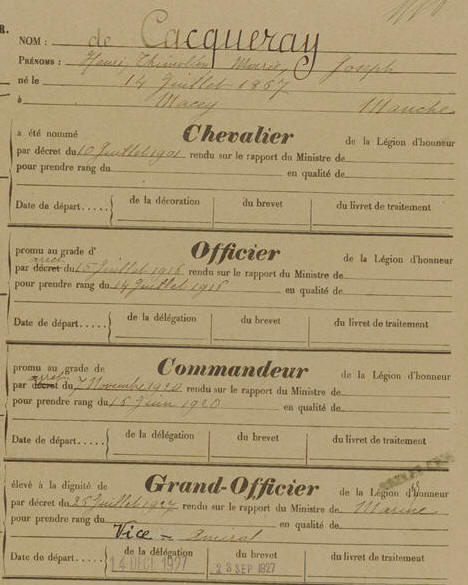 R.
NOM : de Cacqueray
PRÉNOMS : Henri, Thimoléon Marie, Joseph
né le 14 Juillet 1857
à Macey Manche
a été nommé Chevalier de la Légion d'honneur
par décret du 10 Juillet 1901 rendu sur le rapport du Ministre de
pour prendre rang du en qualité de
Date de départ..... de la décoration du brevet du livret de traitement
promu au grade d' Officier de la Légion d'honneur
arrêté
par décret du 15 Juillet 1916 rendu sur le rapport du Ministre de
pour prendre rang du 14 Juillet 1916 en qualité de
Date de départ..... de la délégation du brevet du livret de traitement
promu au grade de Commandeur de la Légion d'honneur
arrêté
par décret du 7 Novembre 1920 rendu sur le rapport du Ministre de
pour prendre rang du 16 Juin 1920 en qualité de
Date de départ..... de la délégation du brevet du livret de traitement
élevé à la dignité de Grand-Officier de la Légion d'honneur
par décret du 25 Juillet 1927 rendu sur le rapport du Ministre de Marine
pour prendre rang du en qualité de
Vice - Amiral
Date de départ..... de la délégation du brevet du livret de traitement
14 DEC 1927 23 SEP 1927